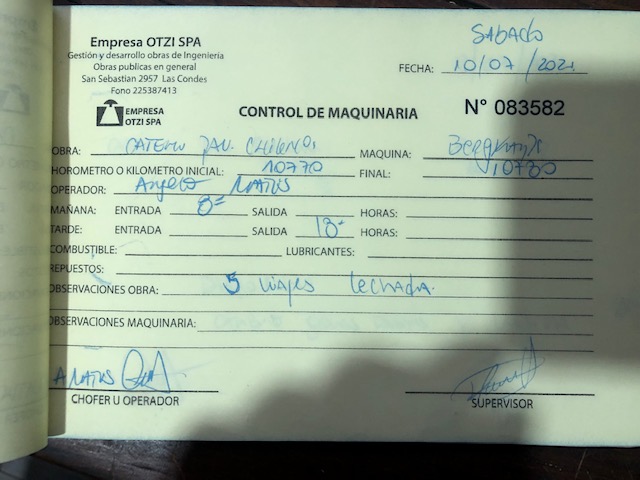 Empresa OTZI SPA
Gestión y desarrollo obras de Ingeniería
Obras publicas en general
San Sebastian 2957 Las Condes
Fono 225387413
SABADO
FECHA: 10/07/2021
EMPRESA
OTZI SPA
CONTROL DE MAQUINARIA
N° 083582
OBRA: MAQUINA:
HOROMETRO O KILOMETRO INICIAL: 10770 FINAL: 10780
OPERADOR: Angelo
MAÑANA: ENTRADA 8- SALIDA 13- HORAS:
TARDE: ENTRADA SALIDA HORAS:
COMBUSTIBLE: LUBRICANTES:
REPUESTOS:
OBSERVACIONES OBRA: 5 viajes lechada.
OBSERVACIONES MAQUINARIA:
CHOFER U OPERADOR SUPERVISOR